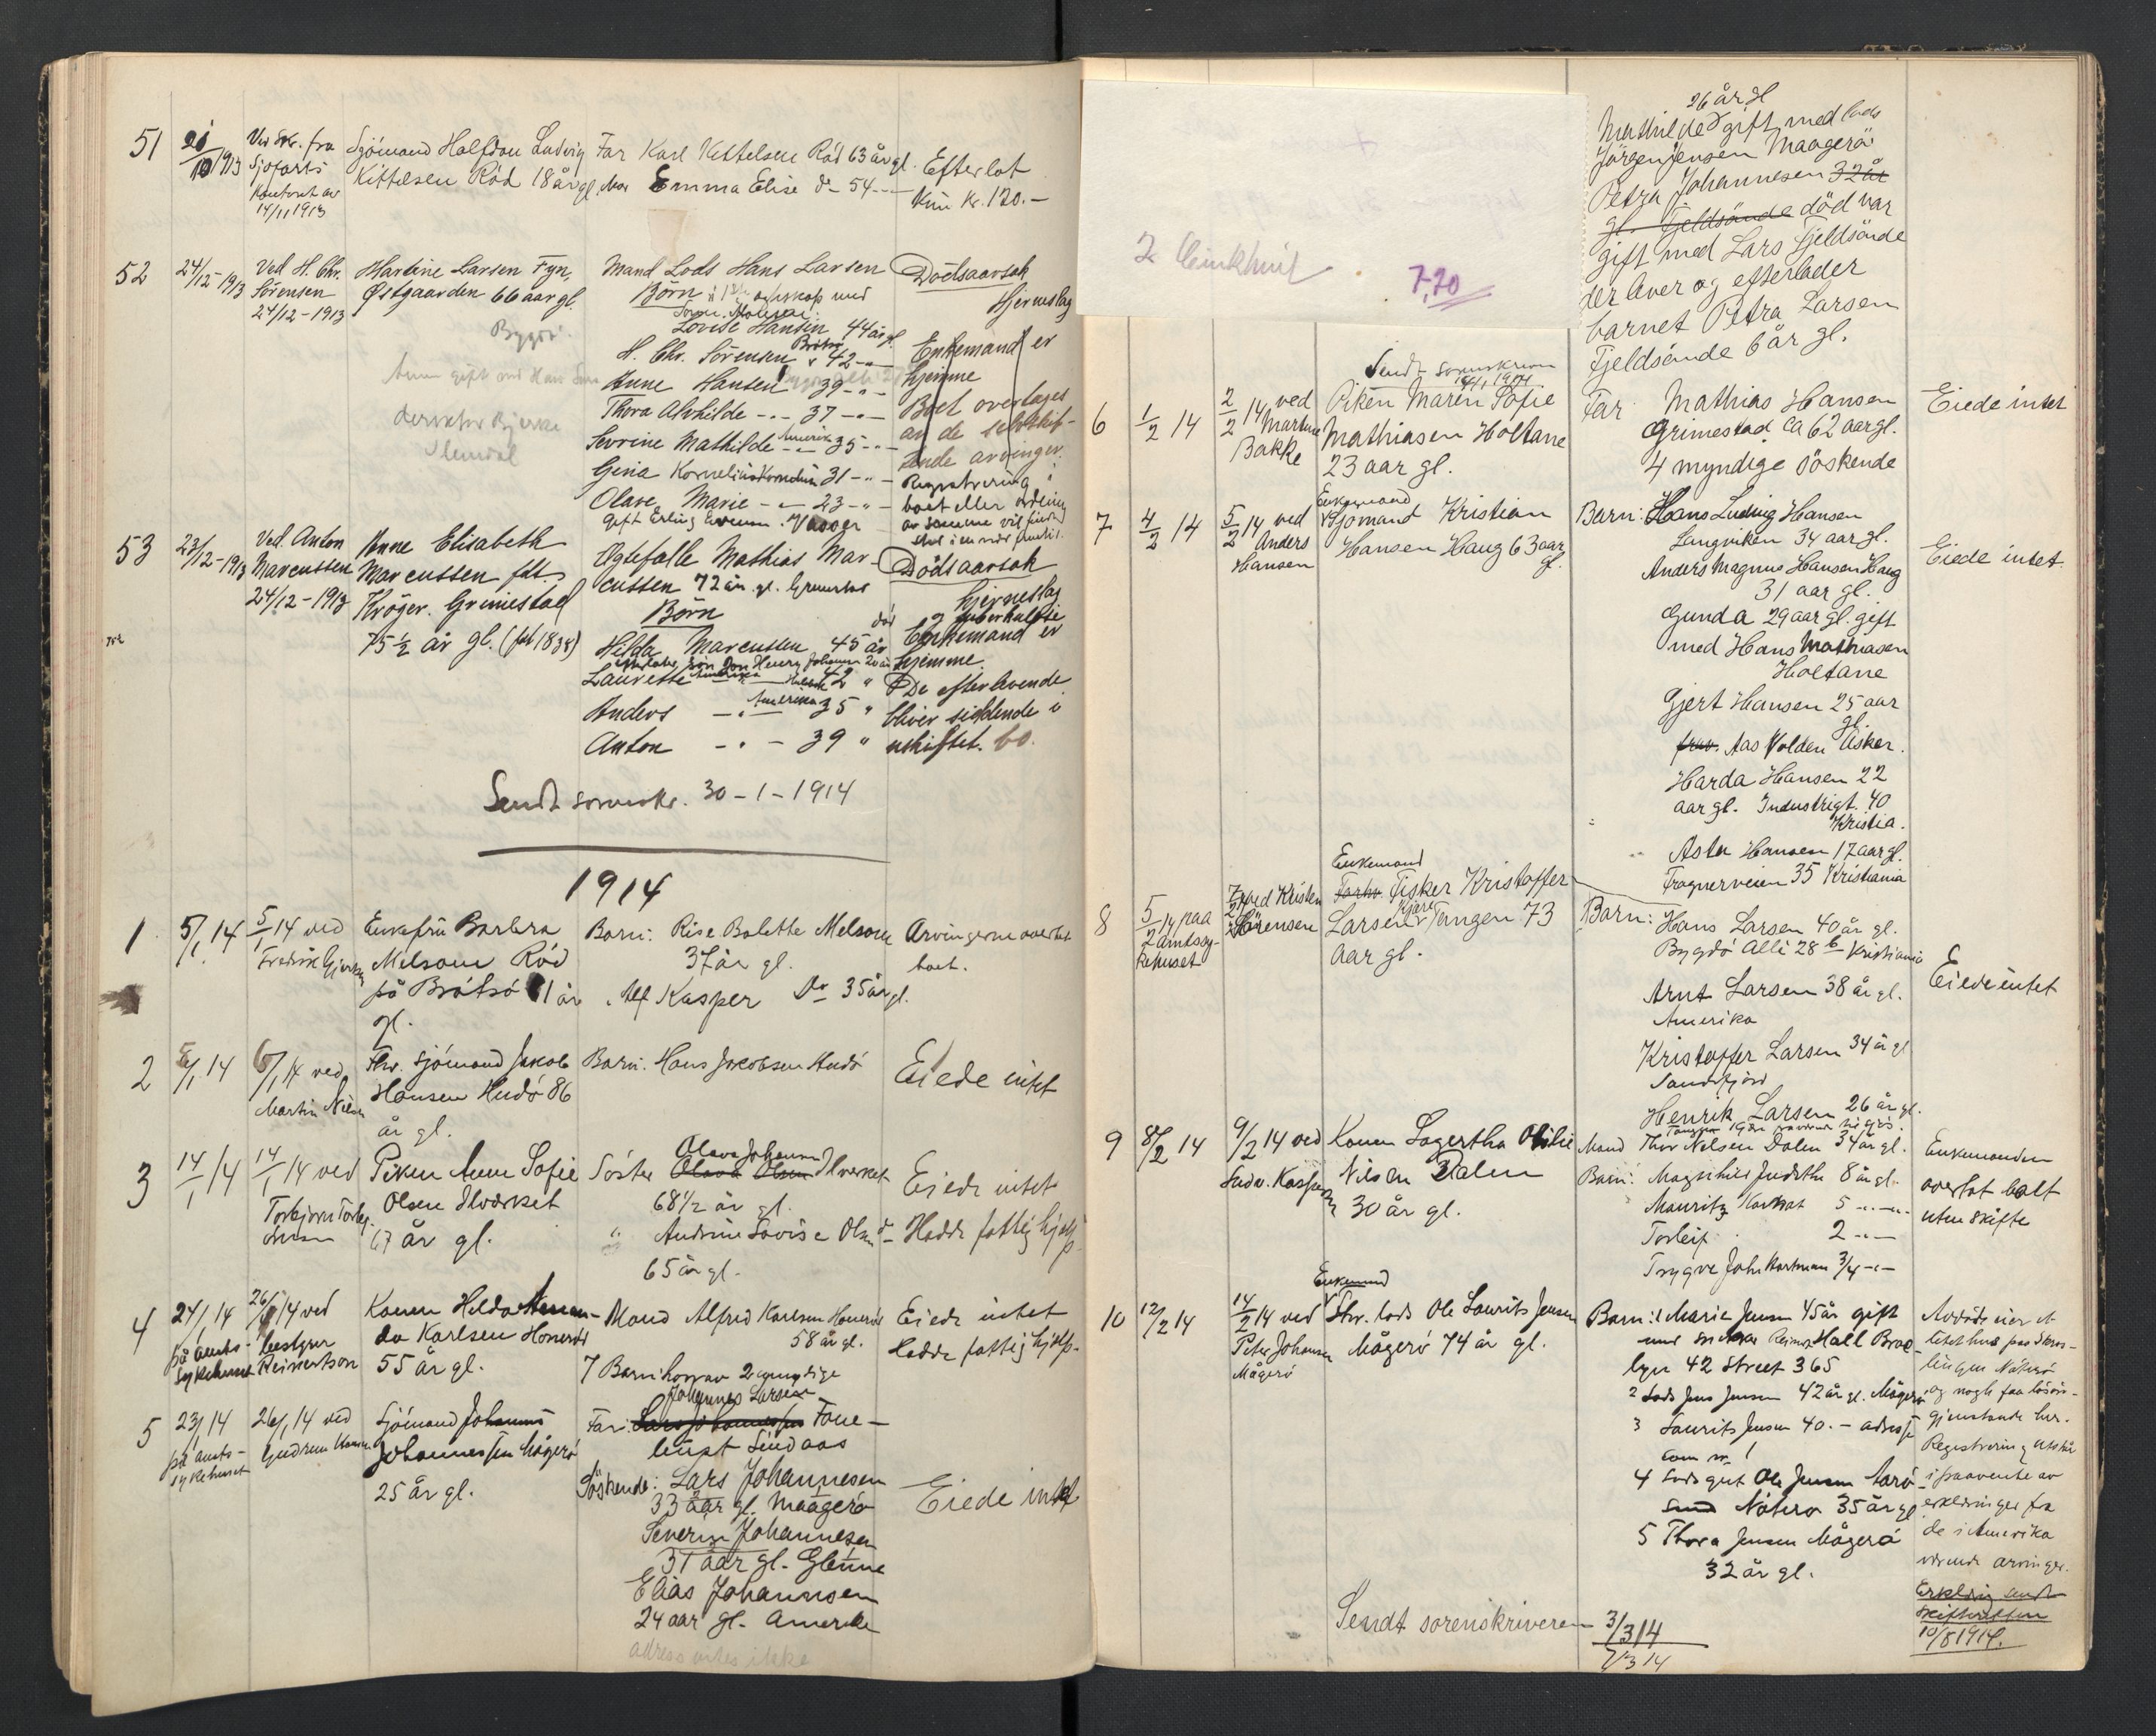 51
21/10 1913
Ved Skr. fra
Sjöfarts
Kontoret av
14/11 1913
Sjömand Halfdan Ludvig
Kittelsen Röd 18 år gl.
Far Karl Kittelsen Röd 63 år gl.
Mor Emma Elise do 54
Efterlot
kun kr. 120.-
52
24/12-1913
Ved H. Chr.
Sörensen
24/12-1913
Martine Larsen Fyn,
Østgaarden 66 aar gl.
Bygdö.
Anne gift med Hans
Slemdal
Mand Lods Hans Larsen
Börn
Lovise Hansen 44 år gl.
H. Chr. Sörensen 42
Anne Hansen 39
Thora Alvhilde 37
Sevrine Mathilde Amerika 35
Gina Kornelia 31
Olave Marie 23
Gift Erling Evensen. Vasser
Dödsaarsak
Hjerneslag
Enkemand er
hjemme
Boet overtages
av de selvskif-
tende arvinger.
Registrering i
boet eller ordning
av samme vil finde
sted i en nær fremtid.
53
23/12-1913
Ved. Anton
Marcussen
24/12-1913
Anne Elisabeth
Marcussen födt
Kröger. Grimestad
75 1/2 år gl. (föd 1838)
Ægtefælle Mathias Mar-
cussen 72 år. gl. Grimestad
Börn
Hilda Marcussen 45 år
død
Laurette Amerika 42 "
Anders Amerika 35 "
Anton 39 "
Dödsaarsak
Hjerneslag
Enkemand er
hjemme.
De efterlevende
bliver siddende i
uskiftet bo.
Sendt sorenskr. 30-1-1914
1914
1
5/1 14
5/1 14 ved
Fredrik Gjertsen
Enkefru Barbra
Melsom Röd
på Brötsö 81 år
gl.
Barn: Rise Bolette Melsom
37 år gl.
Alf Kasper Do 35 år gl.
Arvingerne overtat
boet.
2
5/1 14
6/1 14 ved
Martin Nilsen
Fhv. sjömand Jakob
Hansen Hudö 86
år gl.
Barn: Hans Jakobsen Hudö
Eiede intet
3
14/1 14
14/1 14 ved
Torbjorn Torbj.
Piken Anne Sofie
Olsen Ilværket
67 år gl.
Olava Johanna
Söster Olava Olsen Ilverket
68 1/2 år gl.
" Andrine Lovise Olsen do
65 år gl.
Eiede intet
Hadde fattighjelp.
4
24/1 14
på amts-
sykehuset
26/1 14 ved
bestyrer
Reinertson
Konen Hilda Aman-
da Karlsen Honerød
55 år gl.
Mand Alfred Karlsen Honerød
58 år gl.
7 Barn hvorav 2 umyndige
Eiede intet
Hadde fattighjelp.
5
23/1 14
på amts-
sykehuset
26/1 14 ved
Gudrun Hansen
Sjömand Johannes
Johannessen Mågerö
25 år gl.
Johannes Larsen
Far: Lars Johannessen Tone-
Lindaas
Söskende: Lars Johannesen
33 aar gl. Maagerö
Severin Johannesen
31 aar gl. Glenne
Elias Johannesen
24 aar gl. Amerika
adress vites ikke
Eiede intet
7,20
26 år gl
Mathilde gift med lods
Jörgen Jensen Maagerö
Petra Johannesen 32 år
gl. Fjeldsände död var
gift med Lars Fjeldsände
der lever og efterlader
barnet Petra Larsen
Fjeldsände 6 år gl.
6
1/2 14
2/2 14 ved
Martine
Bakke
Sendt sorenskriven
Piken Maren Sofie
Mathiasen Holtane
23 aar gl.
Far Mathias Hansen
Grimestad ca 62 aar gl.
4 myndige söskende
Eiede intet
7
4/2 14
5/2 14 ved
Anders
Hansen
Enkemand
Sjömand Kristian
Hansen Haug 63 aar
gl.
Barn: Hans Ludvig Hansen
Langviken 34 aar gl.
Anders Magnus Hansen Haug
31 aar gl.
Gunda 29 aar gl. gift
med Hans Mathiasen
Holtane
Gjert Hansen 25 aar
gl.
Aas Volden Asker.
Harda Hansen 22
aar gl. Industrigt. 40
Kristia.
Asta Hansen 17 aar gl.
Frognerveien 35 Kristiania
Eiede intet.
8
5/2 14 paa
amtssy-
kehuset
7/2 ved Kristen
Sörensen
Enkemand
Forhv. Fisker Kristoffer
Larsen Kjære Tangen 73
aar gl.
Barn: Hans Larsen 40 år gl.
Bygdö Alle 28 b Kristiania
Arnt Larsen 38 år gl.
Amerika
Kristoffer Larsen 34 år gl
Sandefjord
Henrik Larsen 26 år gl.
Eiede intet
9
8/2 14
9/2 14 ved
Ludv. Kaspersen
Konen Lagertha Otilie
Nilsen Dalen
30 år gl.
Mand Thor Nilsen Dalen 34 år gl.
Barn: Magnhild Judithe 8 år gl.
Mauritz 5
Torleif 2
Trygve John Hartman 3/4
Enkemanden
overtat boet
uten skifte
10
12/2 14
14/2 14 ved
Peter Johansen
Mågerö
Enkemand
Fhv. lods Ole Laurits Jensen
Mågerö 74 år gl.
Barn: 1 Marie Jensen 45 år gift
med Hall Broo-
lyn 42 Street 365
2 Lods Jens Jensen 42 år gl. Mågerö
3 Laurits Jensen 40. - adresse
som nr. 1
4 Lodsgut Ole Jensen Aarö-
sund Nöterö 35 år gl
5 Thora Jensen Mågerö
32 år gl.
Avdöde eier et
litet hus paa
Nöterö
og nogle faa lösöre-
gjenstande her.
Registrering utstår
i paavente av
erklæringer fra
de i Amerika
værende arvinger.
Erklæring sendt
skifteretten
10/8 1914.
Sendt sorenskriveren 3/3 14
7/3 14